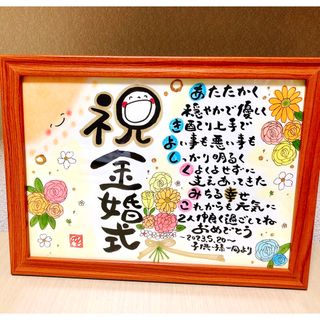 祝
金婚式
あたたかく
穏やかで優しく
き配り上手で
よい事も悪い事も
しっかり明るく
くよくよせずに
支えあってきた
みちる幸せ
これからも元気に
2人仲良く過ごしてね
おめでとう
~2023.5.20~
子供・孫一同より